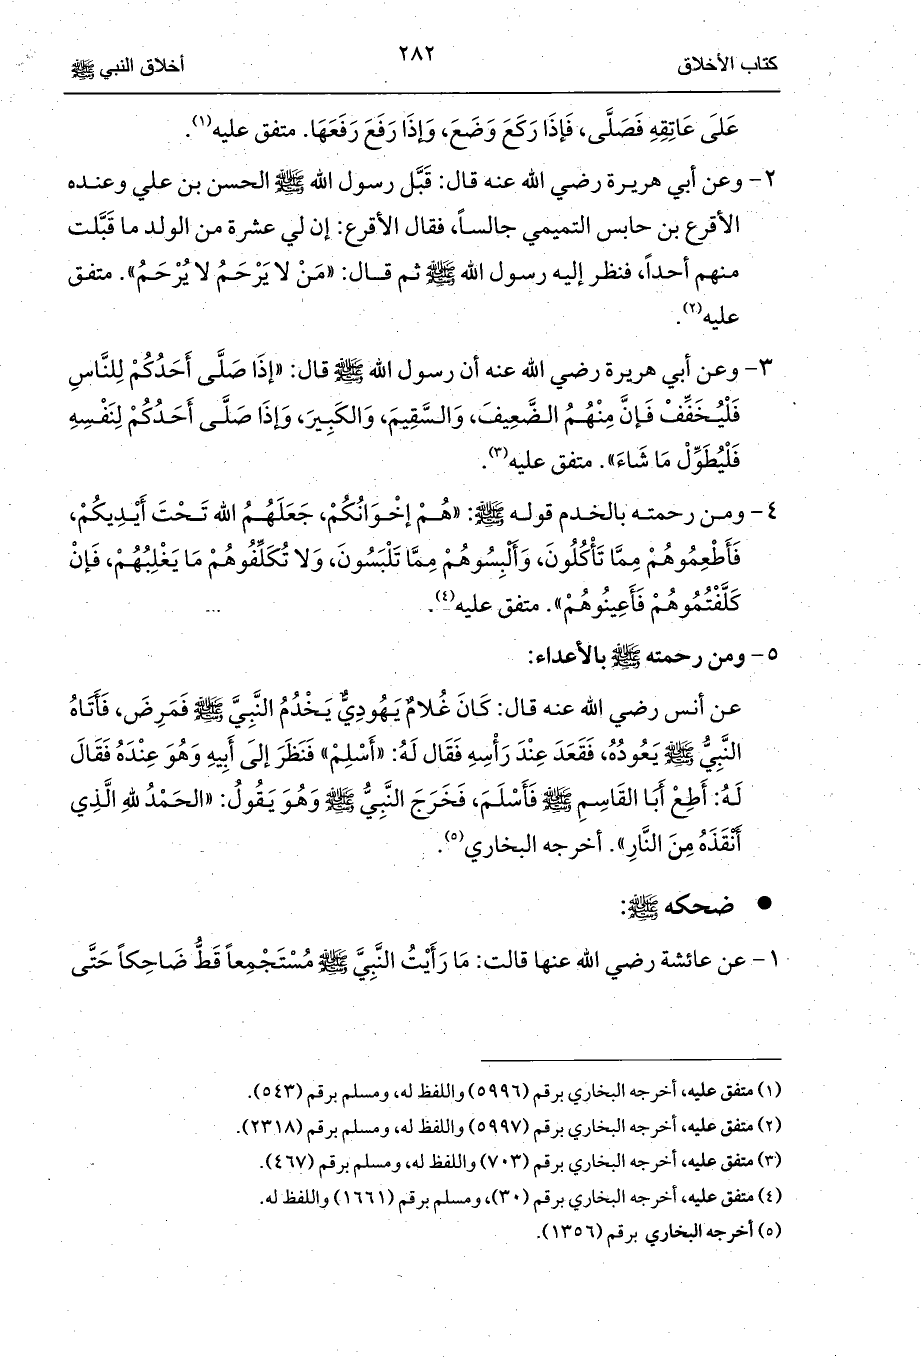 كتاب الأخلاق
٢٨٢
أخلاق النبي ﷺ
عَلَى عَاتِقِهِ فَصَلَّى، فَإذَا رَكَعَ وَضَعَ، وَإذَا رَفَعَ رَفَعَهَا. متفق عليه(١).
٢- وعن أبي هريرة رضي الله عنه قال: قَبَّل رسول الله ﷺ الحسن بن علي وعنده
الأقرع بن حابس التميمي جالساً، فقال الأقرع: إن لي عشرة من الولد ما قَبَّلت
منهم أحداً، فنظر إليه رسول الله ﷺ ثم قال: «مَنْ لا يَرْحَمُ لا يُرْحَمُ». متفق
عليه(٢).
٣- وعن أبي هريرة رضي الله عنه أن رسول الله ﷺ قال: «إذَا صَلَّى أَحَدُكُمْ لِلنَّاسِ
فَلْيُخَفِّفْ فَإنَّ مِنْهُمُ الضَّعِيفَ، وَالسَّقِيمَ، وَالكَبِيرَ، وَإذَا صَلَّى أَحَدُكُمْ لِنَفْسِهِ
فَلْيُطَوِّلْ مَا شَاءَ». متفق عليه(٣).
٤- ومن رحمته بالخدم قوله ﷺ: «هُمْ إخْوَانُكُمْ، جَعَلَهُمُ الله تَحْتَ أَيْدِيكُمْ،
فَأَطْعِمُوهُمْ مِمَّا تَأْكُلُونَ، وَأَلْبِسُوهُمْ مِمَّا تَلْبَسُونَ، وَلا تُكَلِّفُوهُمْ مَا يَغْلِبُهُمْ، فَإنْ
كَلَّفْتُمُوهُمْ فَأَعِينُوهُمْ». متفق عليه(٤).
٥- ومن رحمته ﷺ بالأعداء:
عن أنس رضي الله عنه قال: كَانَ غُلامٌ يَهُودِيٌّ يَخْدُمُ النَّبِيَّ ﷺ فَمَرِضَ، فَأَتَاهُ
النَّبِيُّ ﷺ يَعُودُهُ، فَقَعَدَ عِنْدَ رَأْسِهِ فَقَال لَهُ: «أَسْلِمْ» فَنَظَرَ إلَى أَبِيهِ وَهُوَ عِنْدَهُ فَقَالَ
لَهُ: أَطِعْ أَبَا القَاسِمِ ﷺ فَأَسْلَمَ، فَخَرَجَ النَّبِيُّ ﷺ وَهُوَ يَقُولُ: «الحَمْدُ لله الَّذِي
أَنْقَذَهُ مِنَ النَّارِ». أخرجه البخاري(٥).
● ضحكه ﷺ:
١- عن عائشة رضي الله عنها قالت: مَا رَأَيْتُ النَّبِيَّ ﷺ مُسْتَجْمِعاً قَطُّ ضَاحِكاً حَتَّى
(١) متفق عليه، أخرجه البخاري برقم (٥٩٩٦) واللفظ له، ومسلم برقم (٥٤٣).
(٢) متفق عليه، أخرجه البخاري برقم (٥٩٩٧) واللفظ له، ومسلم برقم (٢٣١٨).
(٣) متفق عليه، أخرجه البخاري برقم (٧٠٣) واللفظ له، ومسلم برقم (٤٦٧).
(٤) متفق عليه، أخرجه البخاري برقم (٣٠)، ومسلم برقم (١٦٦١) واللفظ له.
(٥) أخرجه البخاري برقم (١٣٥٦).